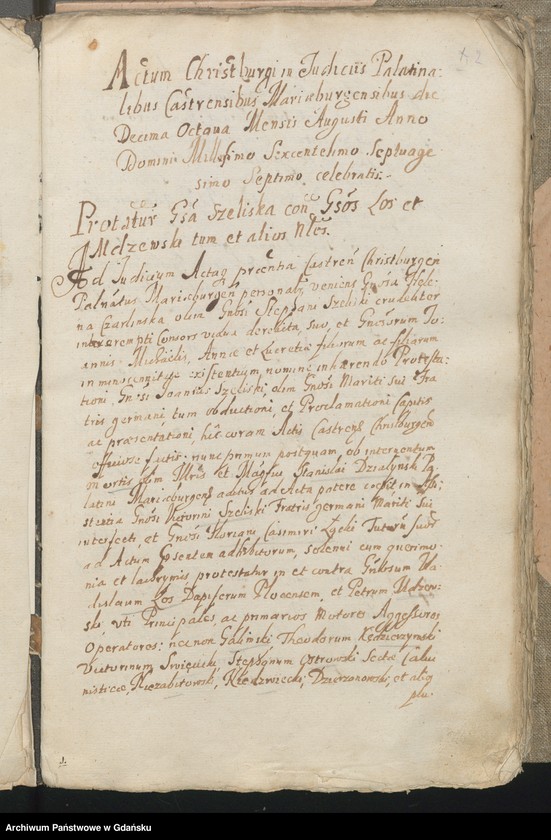 2
Actum Christburgi in Judicijs Palatina:
libus Castrensibus Mariæburgensibus die
Decima Octava Mensis Augusti Anno
Domini Millesimo Sexcentesimo Septuage
simo Septimo celebratis.
Protatur Gsa Szeliska con Gsos Los et
Mdzewski tum et alios Nles.
Ad Judicium Actaq præsentia Castren Christburgen
Palatinatus Mariæburgen personalr veniens Gnosa Hele:
na Czarlinska olim Gnosi Stephani Szeliski crudeliter
interempti Consors vidua derelicta, suo, et Gnosorum Jo:
annis Michaelis, Annæ et Lucretiæ filiorum ac filiarum
in minorennitate existentium, nomine inhærendo Protesta:
tioni Gnosi Joannis Szeliski, olim Gnosi Mariti sui Fra
tris germani tum obductioni, et Proclamationi Capitis
ac præsentationi hic coram Actis Castren Christburgen
officiose factis: nunc primum postquam, ob interventum
mortis olim Illris et Magfci Stanislai Dzialynski Pa
latini Mariæburgen aditus ad Acta patere coepit in Assi:
stentia Gnosi Victorini Szeliski Fratris germani Mariti sui
interfecti, et Gnosi Floriani Casimiri Lyski Tutorum suorum
ad Actum præsentem adhibitorum, solenni cum querimo:
nia et lachrymis, protestatur in et contra Gnosum Wla
dislaum Los Dapiferum Plocensem, et Petrum Mdzew:
ski uti Principales, ac primarios Motores Aggressores
Operatores: necnon Galinski Theodorum Kędzierzynski
Victorinum Swięcicki, Stephanum Ostrowski Sectæ Calvi
nisticæ, Niezabitowski, Niedzwiecki, Dzierzanowski, et alios
plu:
Archiwum Państwowe w Gdańsku